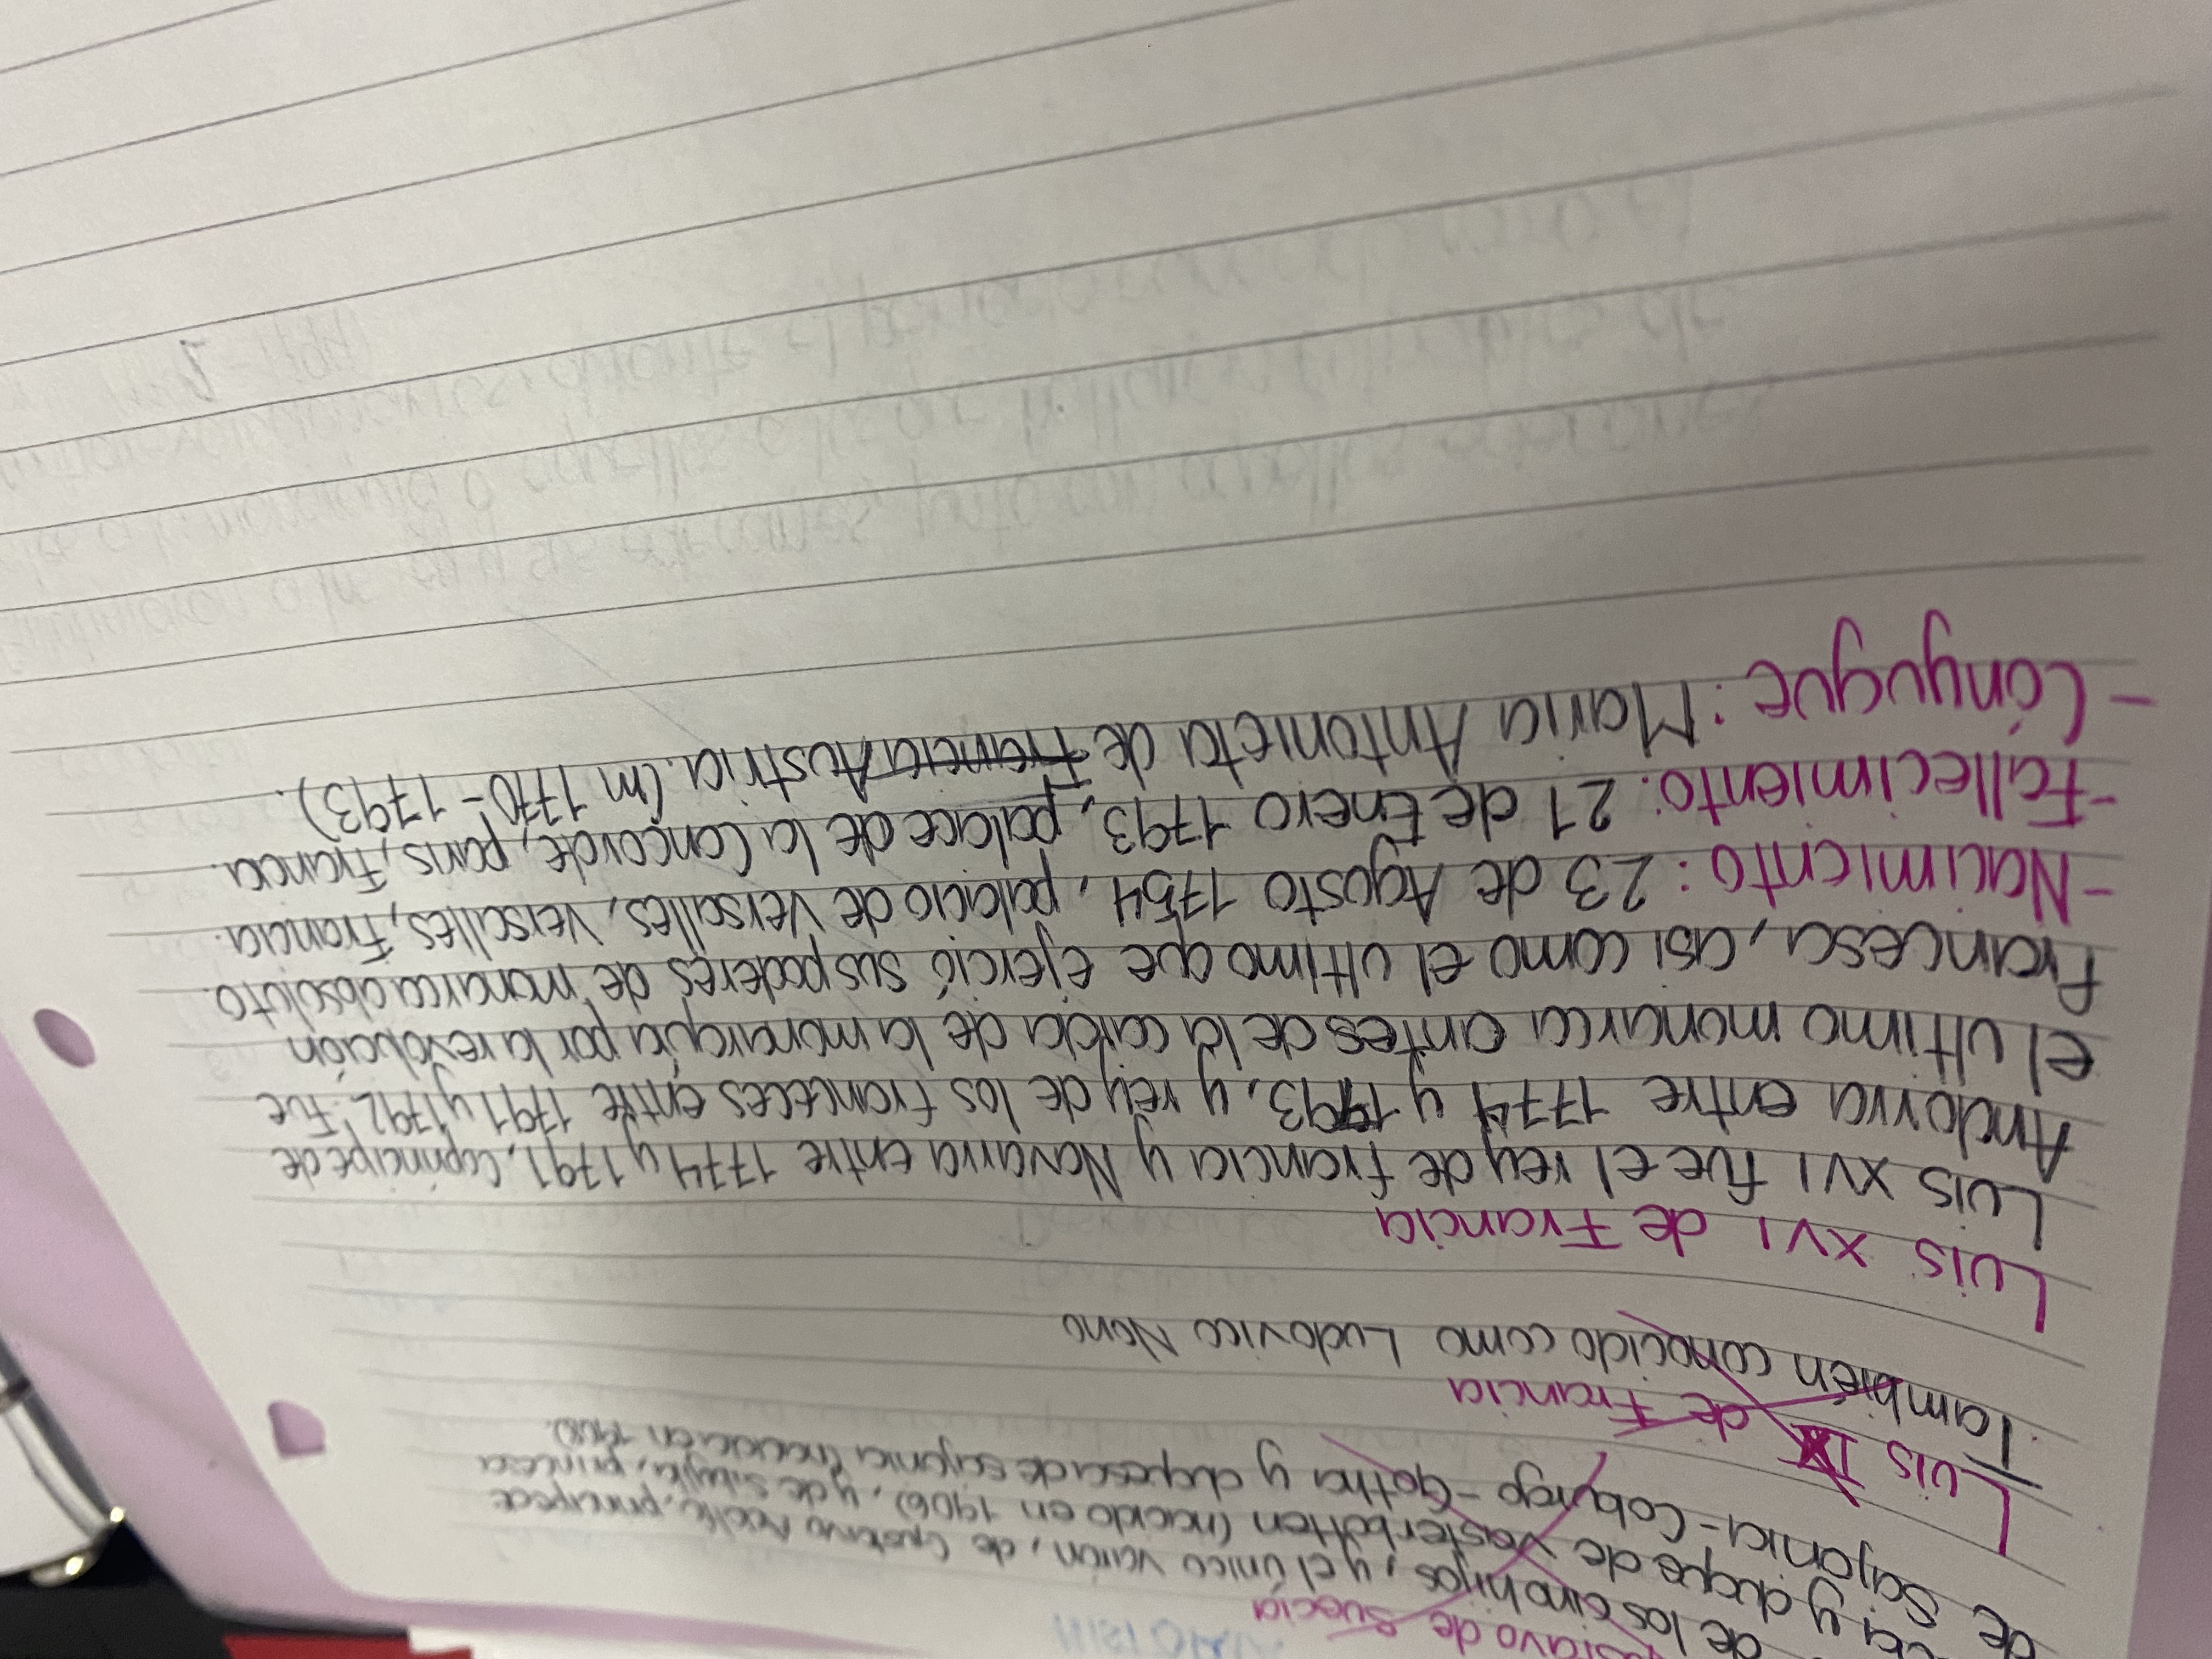 de Suecia
de los cinco hijos, y el único varón, de Gustavo Adolfo, principe de
y duque de Västerbotten (nacido en 1906), y de Sibylla, princesa
de Sajonia-Coburgo-Gotha y duquesa de sajonia (nacida en 1908).
Luis IX de Francia
También conocido como Ludovico Nono
Luis XVI de Francia
Luis XVI fue el rey de francia y Navarra entre 1774 y 1791, Coprincipe de
Andorra entre 1774 y 1793, y rey de los franceces entre 1791 y 1792. Fue
el ultimo monarca antes de la caida de la monarquía por la revolución
Francesa, asi como el ultimo que ejerció sus poderes de monarca absoluto.
-Nacimiento: 23 de Agosto 1754, palacio de Versalles, Versalles, Francia.
-Fallecimiento: 21 de Enero 1793, palace de la Concorde, paris, francia.
-Cónyugue: Maria Antonieta de Francia Austria. (m 1770-1793).